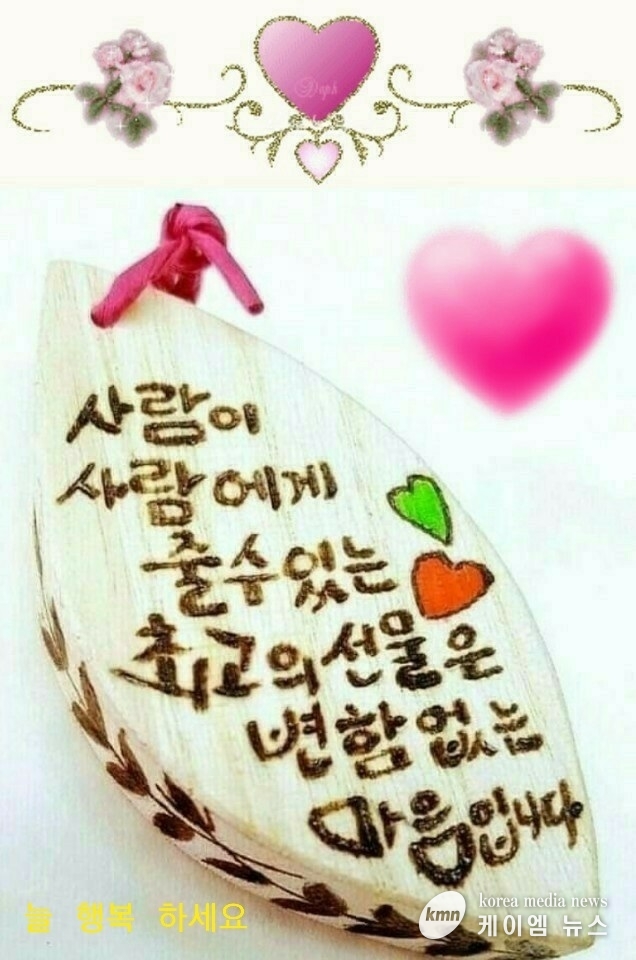 사람이
사람에게
줄수있는
최고의 선물은
변함없는
마음입니다.
늘 행복 하세요
kmn
korea media news
케이엠 뉴스